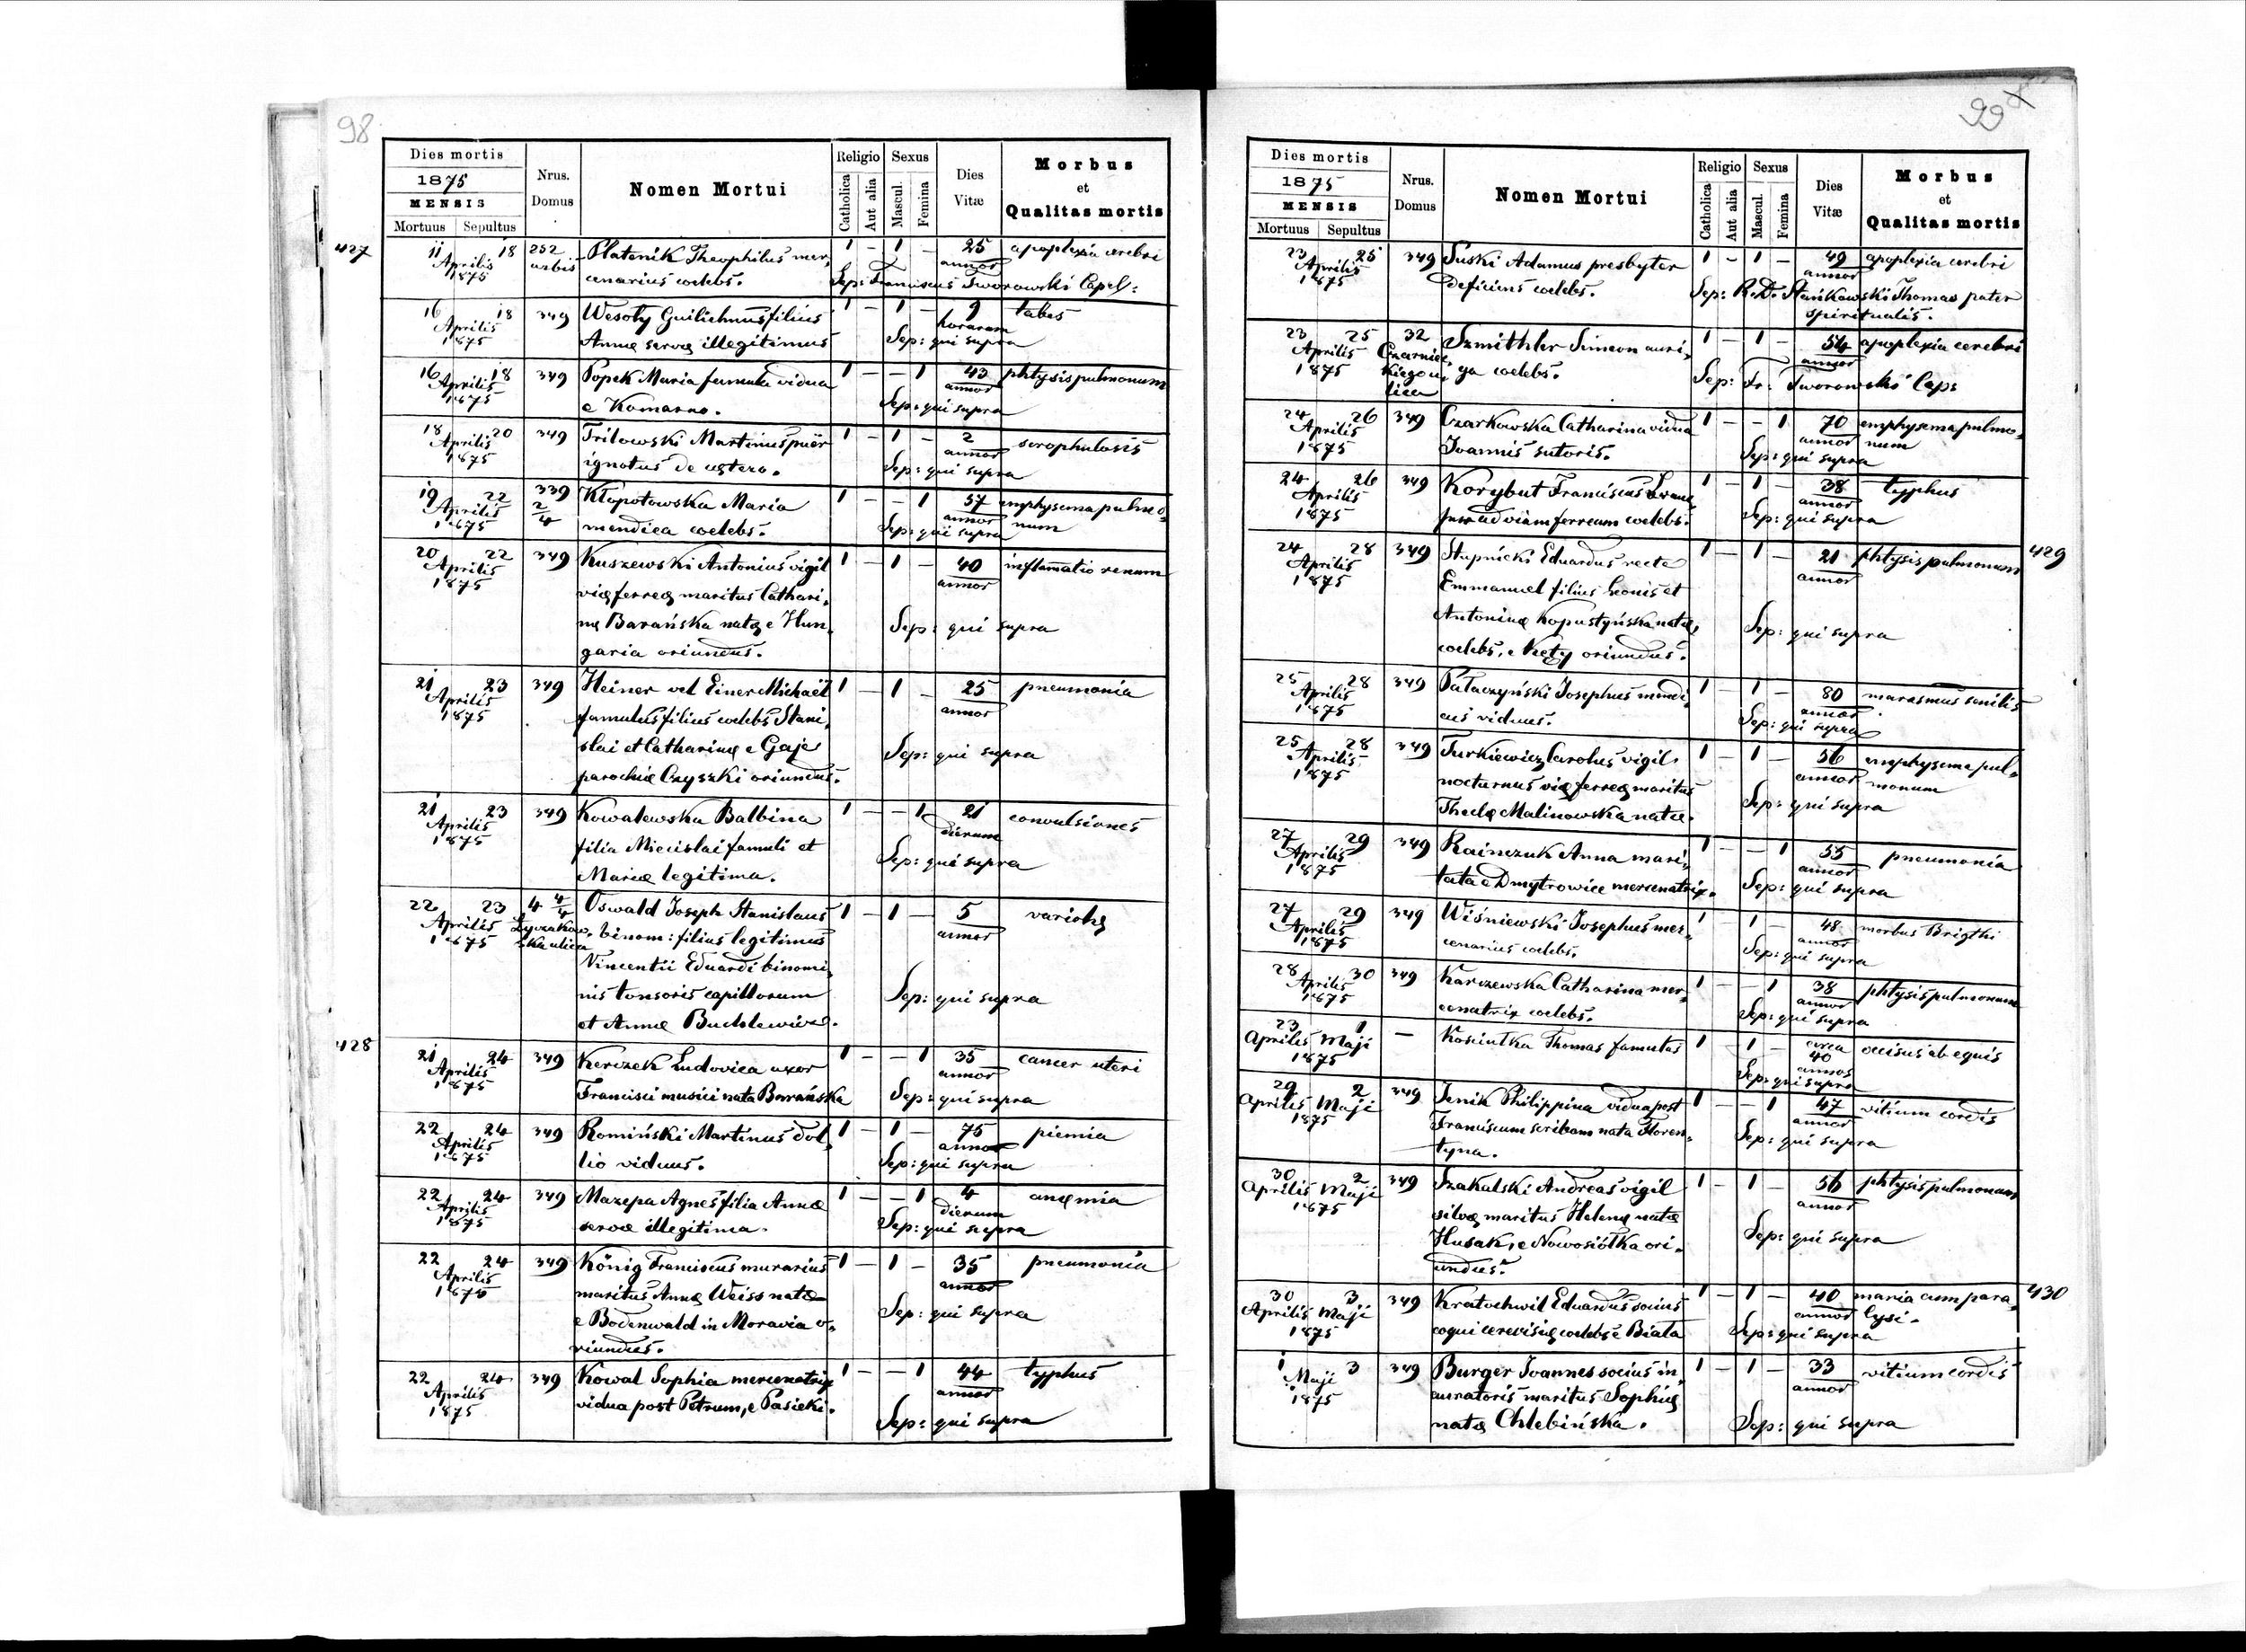 98
Dies mortis
1875
MENSIS
Mortuus Sepultus
Nrus. Domus
Nomen Mortui
Religio
Catholica
Aut alia
Sexus
Mascul.
Femina
Dies Vitæ
Morbus et Qualitas mortis
427
11 18 252 Platenik Theophilus mer, 1 - 1 - 25 apoplexia cerebri
Aprilis urbis cenarius coelebs. annor
1875 Sep: Franciscus Tworowski Capel:
16 18 349 Wesoły Guilielmus filius 1 - 1 - 9 tabes
Aprilis Annæ servæ illegitimus horarum
1875 Sep: qui supra
16 18 349 Popek Maria famula vidua 1 - - 1 43 phtysis pulmonum
Aprilis e Komarno. annor
1875 Sep: qui supra
18 20 349 Trilowski Martinus puër 1 - 1 - 2 scrophulosis
Aprilis ignotus de utero. annor
1875 Sep: qui supra
19 22 339 2/4 Kłopotowska Maria 1 - - 1 57 emphysema pulmo,
Aprilis mendica coelebs. annor num
1875 Sep: qui supra
20 22 349 Kuszewski Antonius vigil 1 - 1 - 40 inflamatio renum
Aprilis viæ ferreæ maritus Cathari, annor
1875 næ Barańska natæ e Hun,
Sep: qui supra
garia oriundus.
21 23 349 Heiner vel Einer Michaël 1 1 - 25 pneumonia
Aprilis famulus filius coelebs Stani, annor
1875 slai et Catharinæ e Gaje
Sep: qui supra
parochiæ Czyszki oriundus.
21 23 349 Kowalewska Balbina 1 - - 1 21 convulsiones
Aprilis filia Miecislai famuli et dierum
1875 Mariæ legitima.
Sep: qui supra
22 23 4 4/4 Oswald Joseph Stanislaus 1 - 1 - 5 variolæ
Aprilis Lyczakow, binom: filius legitimus annor
1875 ska ulica Vincentii Eduardi binomi,
nis tonsoris capillorum
Sep: qui supra
et Annæ
428
21 24 349 Kerczek Ludovica uxor 1 - - 1 35 cancer uteri
Aprilis Francisci musici nata Barańska annor
1875 Sep: qui supra
22 24 349 Romiński Martinus dol, 1 - 1 - 75 piemia
Aprilis lio viduus. annor
1875 Sep: qui supra
22 24 349 Mazepa Agnes filia Annæ 1 - - 1 4 anæmia
Aprilis servæ illegitima. dierum
1875 Sep: qui supra
22 24 349 König Franciscus murarius 1 - 1 - 35 pneumonia
Aprilis maritus Annæ Weiss natæ annor
1875 e Bodenwald in Moravia o,
Sep: qui supra
riundus.
22 24 349 Kowal Sophia mercenatrix 1 - - 1 44 typhus
Aprilis vidua post Petrum, e Pasieki. annor
1875 Sep: qui supra
99
Dies mortis
1875
MENSIS
Mortuus Sepultus
Nrus. Domus
Nomen Mortui
Religio
Catholica
Aut alia
Sexus
Mascul.
Femina
Dies Vitæ
Morbus et Qualitas mortis
23 25 349 Suski Adamus presbyter 1 - 1 - 49 apoplexia cerebri
Aprilis deficiens coelebs. annor
1875 Sep: R. D. Stańkowski Thomas pater
spiritualis.
23 25 32 Szmithler Simeon auri, 1 - 1 - 54 apoplexia cerebri
Aprilis ga coelebs. annor
1875 Sep: Fr: Tworowski Cap:
24 26 349 Czarkowska Catharina vidua 1 - - 1 70 emphysema pulmo,
Aprilis Joannis sutoris. annor num
1875 Sep: qui supra
24 26 349 Korybut Franciscus 1 - 1 - 38 typhus
Aprilis ad viam ferream coelebs. annor
1875 Sep: qui supra
24 28 349 Stupnicki Eduardus recte 1 - 1 - 21 phtysis pulmonum 429
Aprilis Emmanuel filius Leonis et annor
1875 Antoninæ Kopustyńska natæ,
Sep: qui supra
coelebs, e Kęty oriundus.
25 28 349 Pałaczyński Josephus mendi, 1 - 1 - 80 marasmus senilis
Aprilis cus viduus. annor
1875 Sep: qui supra
25 28 349 Turkiewicz Carolus vigil 1 - 1 - 56 emphysema pul,
Aprilis nocturnus viæ ferreæ maritus annor monum
1875 Theclæ Malinowska natæ.
Sep: qui supra
27 29 349 Rainczuk Anna mari, 1 - - 1 55 pneumonia
Aprilis tata e Dmytrowice mercenatrix. annor
1875 Sep: qui supra
27 29 349 Wiśniewski Josephus mer, 1 - 1 - 48 morbus Brigthi
Aprilis cenarius coelebs. annor
1875 Sep: qui supra
28 30 349 Karczewska Catharina mer, 1 - - 1 38 phtysis pulmonum
Aprilis cenatrix coelebs. annor
1875 Sep: qui supra
23 1 - Kosciutka Thomas famulus 1 - 1 - circa 40 occisus ab equis
Aprilis Maji annos
1875 Sep: qui supra
29 2 349 Jenik Philippina vidua post 1 - - 1 47 vitium cordis
Aprilis Maji Franciscum scribam nata Floren, annor
1875 tyna.
Sep: qui supra
30 2 349 Szakalski Andreas vigil 1 - 1 - 56 phtysis pulmonum
Aprilis Maji silvæ maritus Helenæ natæ annor
1875 Husak, e Nowosiółka ori,
Sep: qui supra
undus.
30 3 349 Kratochwil Eduardus socius 1 - 1 - 40 mania cum para, 430
Aprilis Maji coqui cerevisiæ coelebs e Biała annor lysi.
1875 Sep: qui supra
1 3 349 Burger Joannes socius in, 1 - 1 - 33 vitium cordis
Maji auratoris maritus Sophiæ annor
1875 natæ Chlebińska.
Sep: qui supra